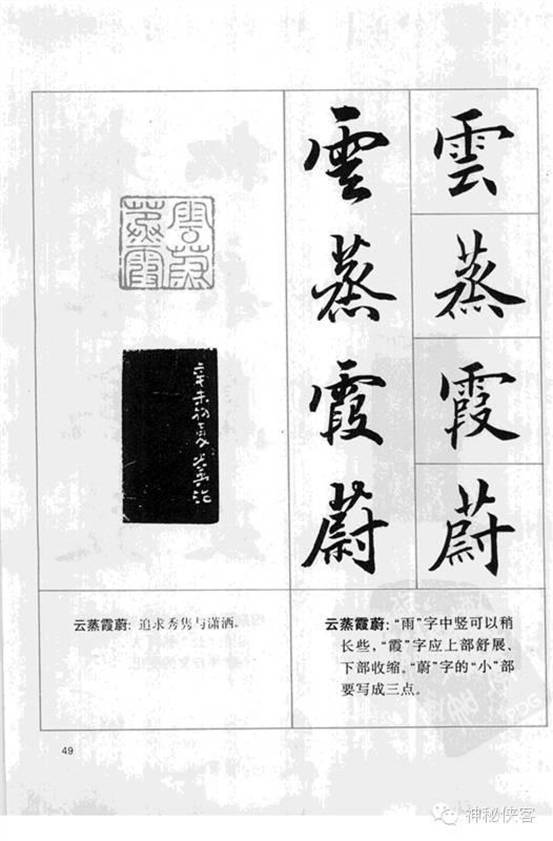 雲蒸霞蔚
雲蒸霞蔚
雲蒸
霞蔚
辛未初夏
云蒸霞蔚：追求秀隽与潇洒.
云蒸霞蔚：“雨”字中竖可以稍
长些，“霞”字应上部舒展、
下部收缩。“蔚”字的“小”部
要写成三点。
49
神秘侠客